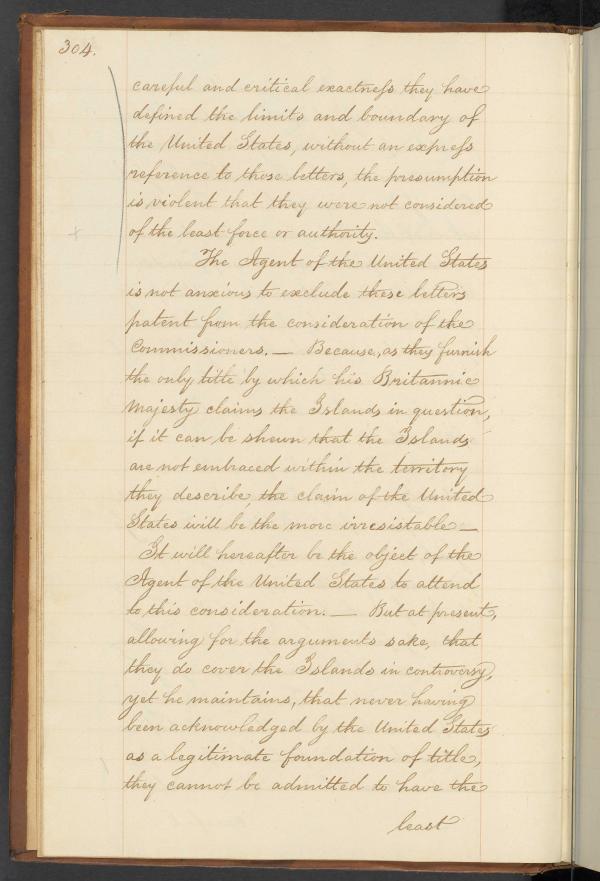 304.
careful and critical exactness they have
defined the limits and boundary of
the United States, without an express
reference to those letters, the presumption
is violent that they were not considered
of the least force or authority.
The Agent of the United States
is not anxious to exclude these letters
patent from the consideration of the
Commissioners. — Because, as they furnish
the only title by which his Britannic
Majesty claims the Islands in question,
if it can be shewn that the Islands
are not embraced within the territory
they describe, the claim of the United
States will be, the more irresistable —
It will hereafter be the object of the
Agent of the United States to attend
to this consideration. — But at present,
allowing for the arguments sake, that
they do cover the Islands in controversy,
yet he maintains, that never having
been acknowledged by the United States
as a legitimate foundation of title,
they cannot be admitted to have the
least